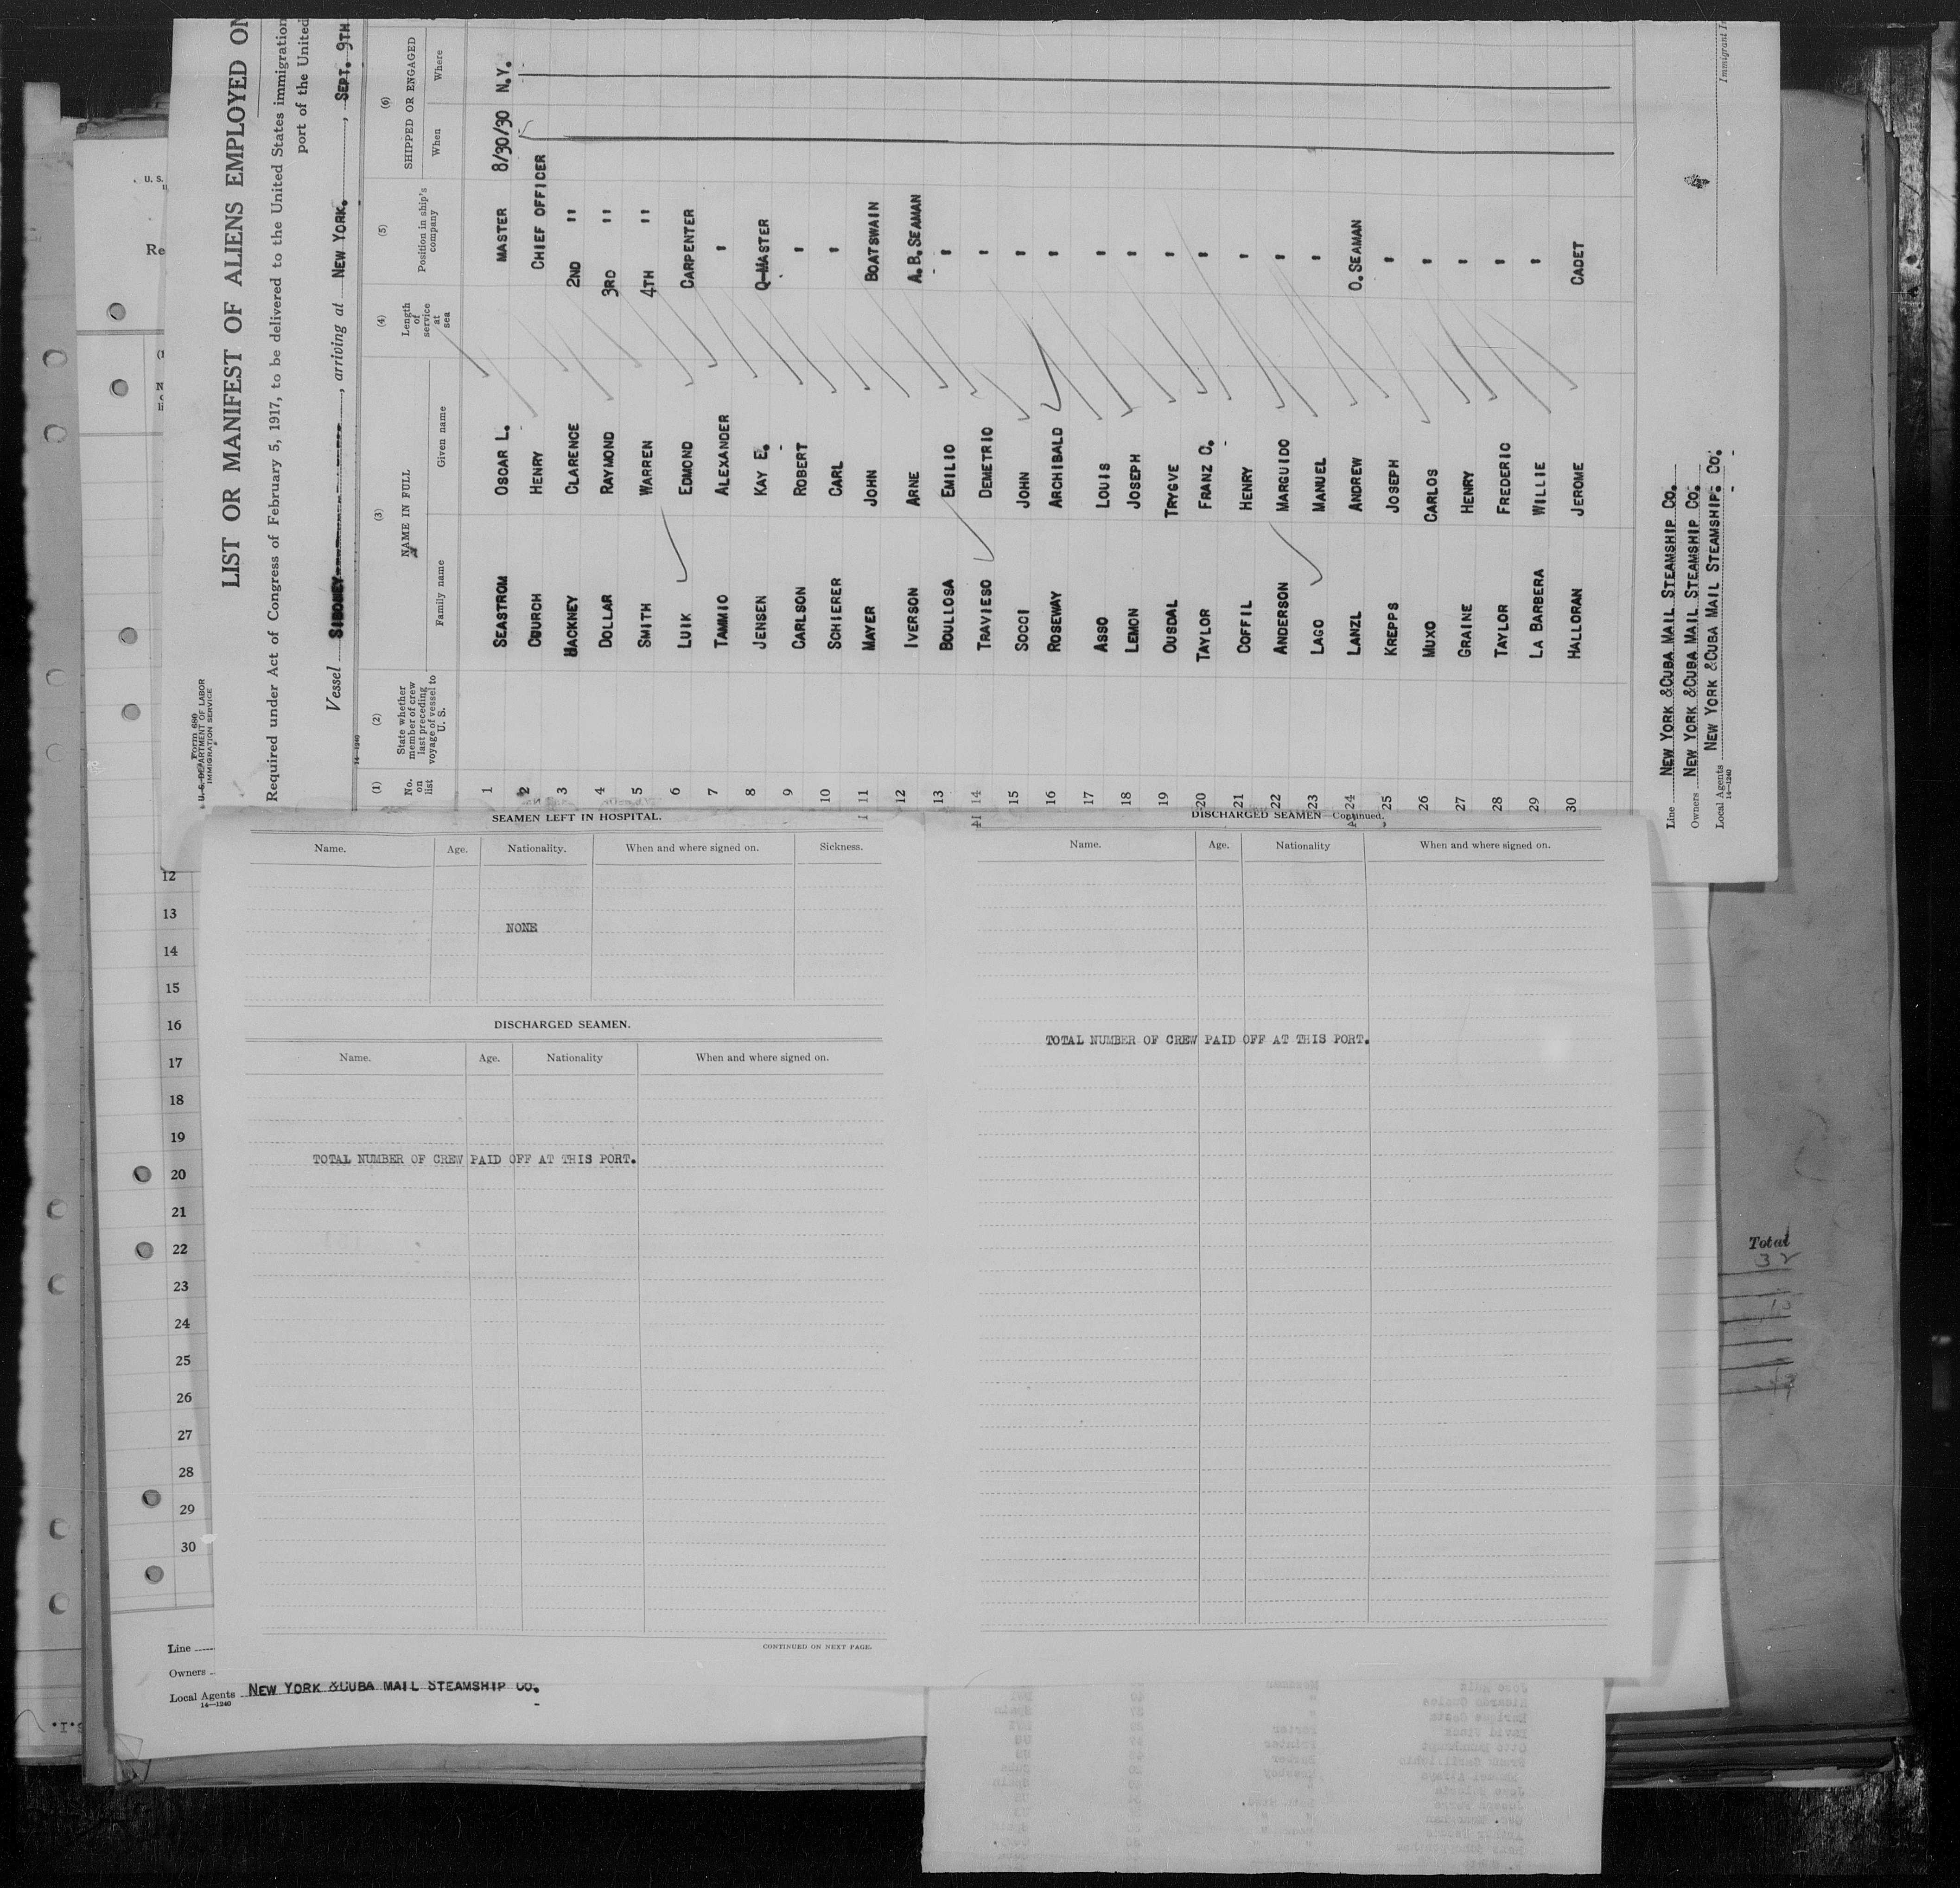 Form 680
U. S. DEPARTMENT OF LABOR
IMMIGRATION SERVICE
LIST OR MANIFEST OF ALIENS EMPLOYED ON
Required under Act of Congress of February 5, 1917, to be delivered to the United States immigration
port of the United
Vessel SIBONEY, arriving at NEW YORK., SEPT. 9TH
14—1240
(1) (2) (3) (4) (5) (6)
No. on list
State whether member of crew last preceding voyage of vessel to U. S.
NAME IN FULL
Family name Given name
Length of service at sea
Position in ship's company
SHIPPED OR ENGAGED
When Where
1 SEASTROM OSCAR L. MASTER 8/30/30 N.Y.
2 CHURCH HENRY CHIEF OFFICER
3 HACKNEY CLARENCE 2ND "
4 DOLLAR RAYMOND 3RD "
5 SMITH WARREN 4TH "
6 LUIK EDMOND CARPENTER
7 TAMMIO ALEXANDER "
8 JENSEN KAY E. Q-MASTER
9 CARLSON ROBERT "
10 SCHIERER CARL "
11 MAYER JOHN BOATSWAIN
12 IVERSON ARNE A.B.SEAMAN
13 BOULLOSA EMILIO "
14 TRAVIESO DEMETRIO "
15 SOCCI JOHN "
16 ROSEWAY ARCHIBALD "
17 ASSO LOUIS "
18 LEMON JOSEPH "
19 OUSDAL TRYGVE "
20 TAYLOR FRANZ O. "
21 COFFIL HENRY "
22 ANDERSON MARGUIDO "
23 LAGO MANUEL "
24 LANZL ANDREW O.SEAMAN
25 KREPPS JOSEPH "
26 MUXO CARLOS "
27 GRAINE HENRY "
28 TAYLOR FREDERIC "
29 LA BARBERA WILLIE "
30 HALLORAN JEROME CADET
Line NEW YORK &CUBA MAIL STEAMSHIP CO.
Owners NEW YORK &CUBA MAIL STEAMSHIP CO.
Local Agents NEW YORK &CUBA MAIL STEAMSHIP. CO.
14—1240
Immigrant
U. S.
Re
SEAMEN LEFT IN HOSPITAL.
Name. Age. Nationality. When and where signed on. Sickness.
NONE
DISCHARGED SEAMEN.
Name. Age. Nationality When and where signed on.
TOTAL NUMBER OF CREW PAID OFF AT THIS PORT.
CONTINUED ON NEXT PAGE.
DISCHARGED SEAMEN—Continued.
Name. Age. Nationality When and where signed on.
TOTAL NUMBER OF CREW PAID OFF AT THIS PORT.
12
13
14
15
16
17
18
19
20
21
22
23
24
25
26
27
28
29
30
Line
Owners
Local Agents NEW YORK &CUBA MAIL STEAMSHIP CO.
14—1240
Total
32